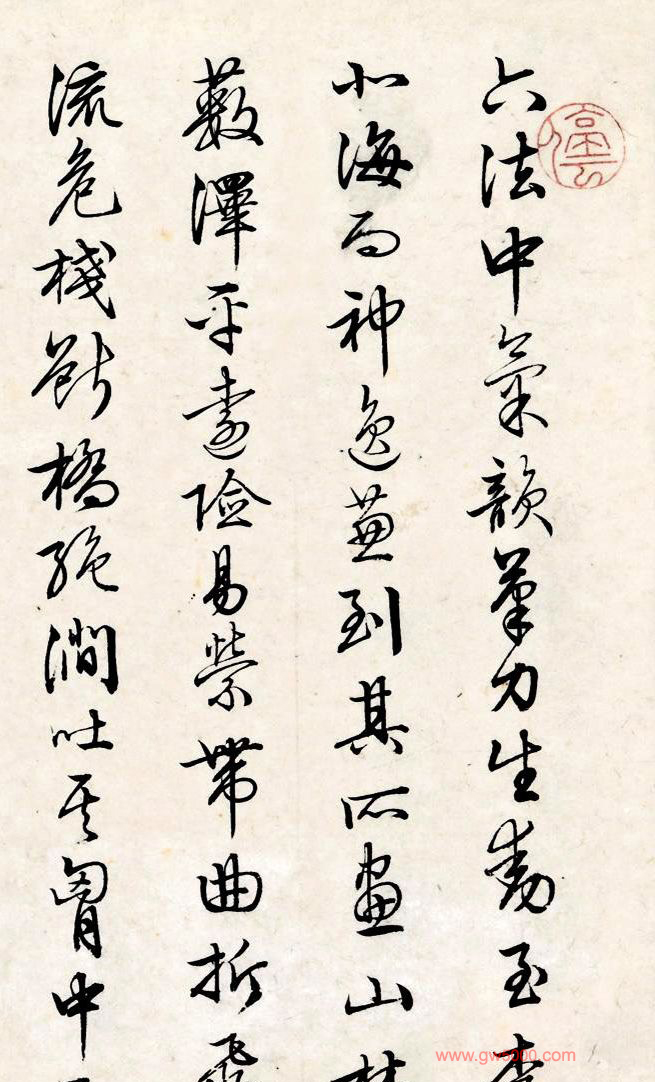 六法中氣韻筆力生動至李
北海而神逸兼到其所畫山林
藪澤平遠險易縈帶曲折飛
流危棧斷橋絕澗吐其胸中
www.gw5000.com